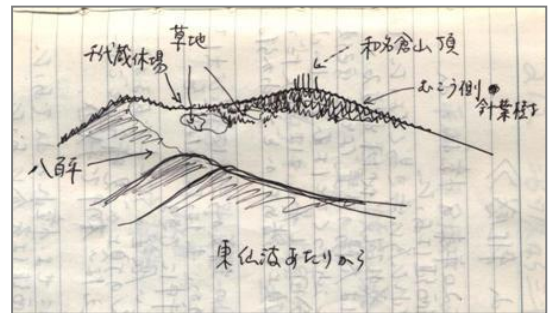 草地
千代蔵休場
和名倉山頂
むこう側
針葉樹
八百平
東仙波あたりから